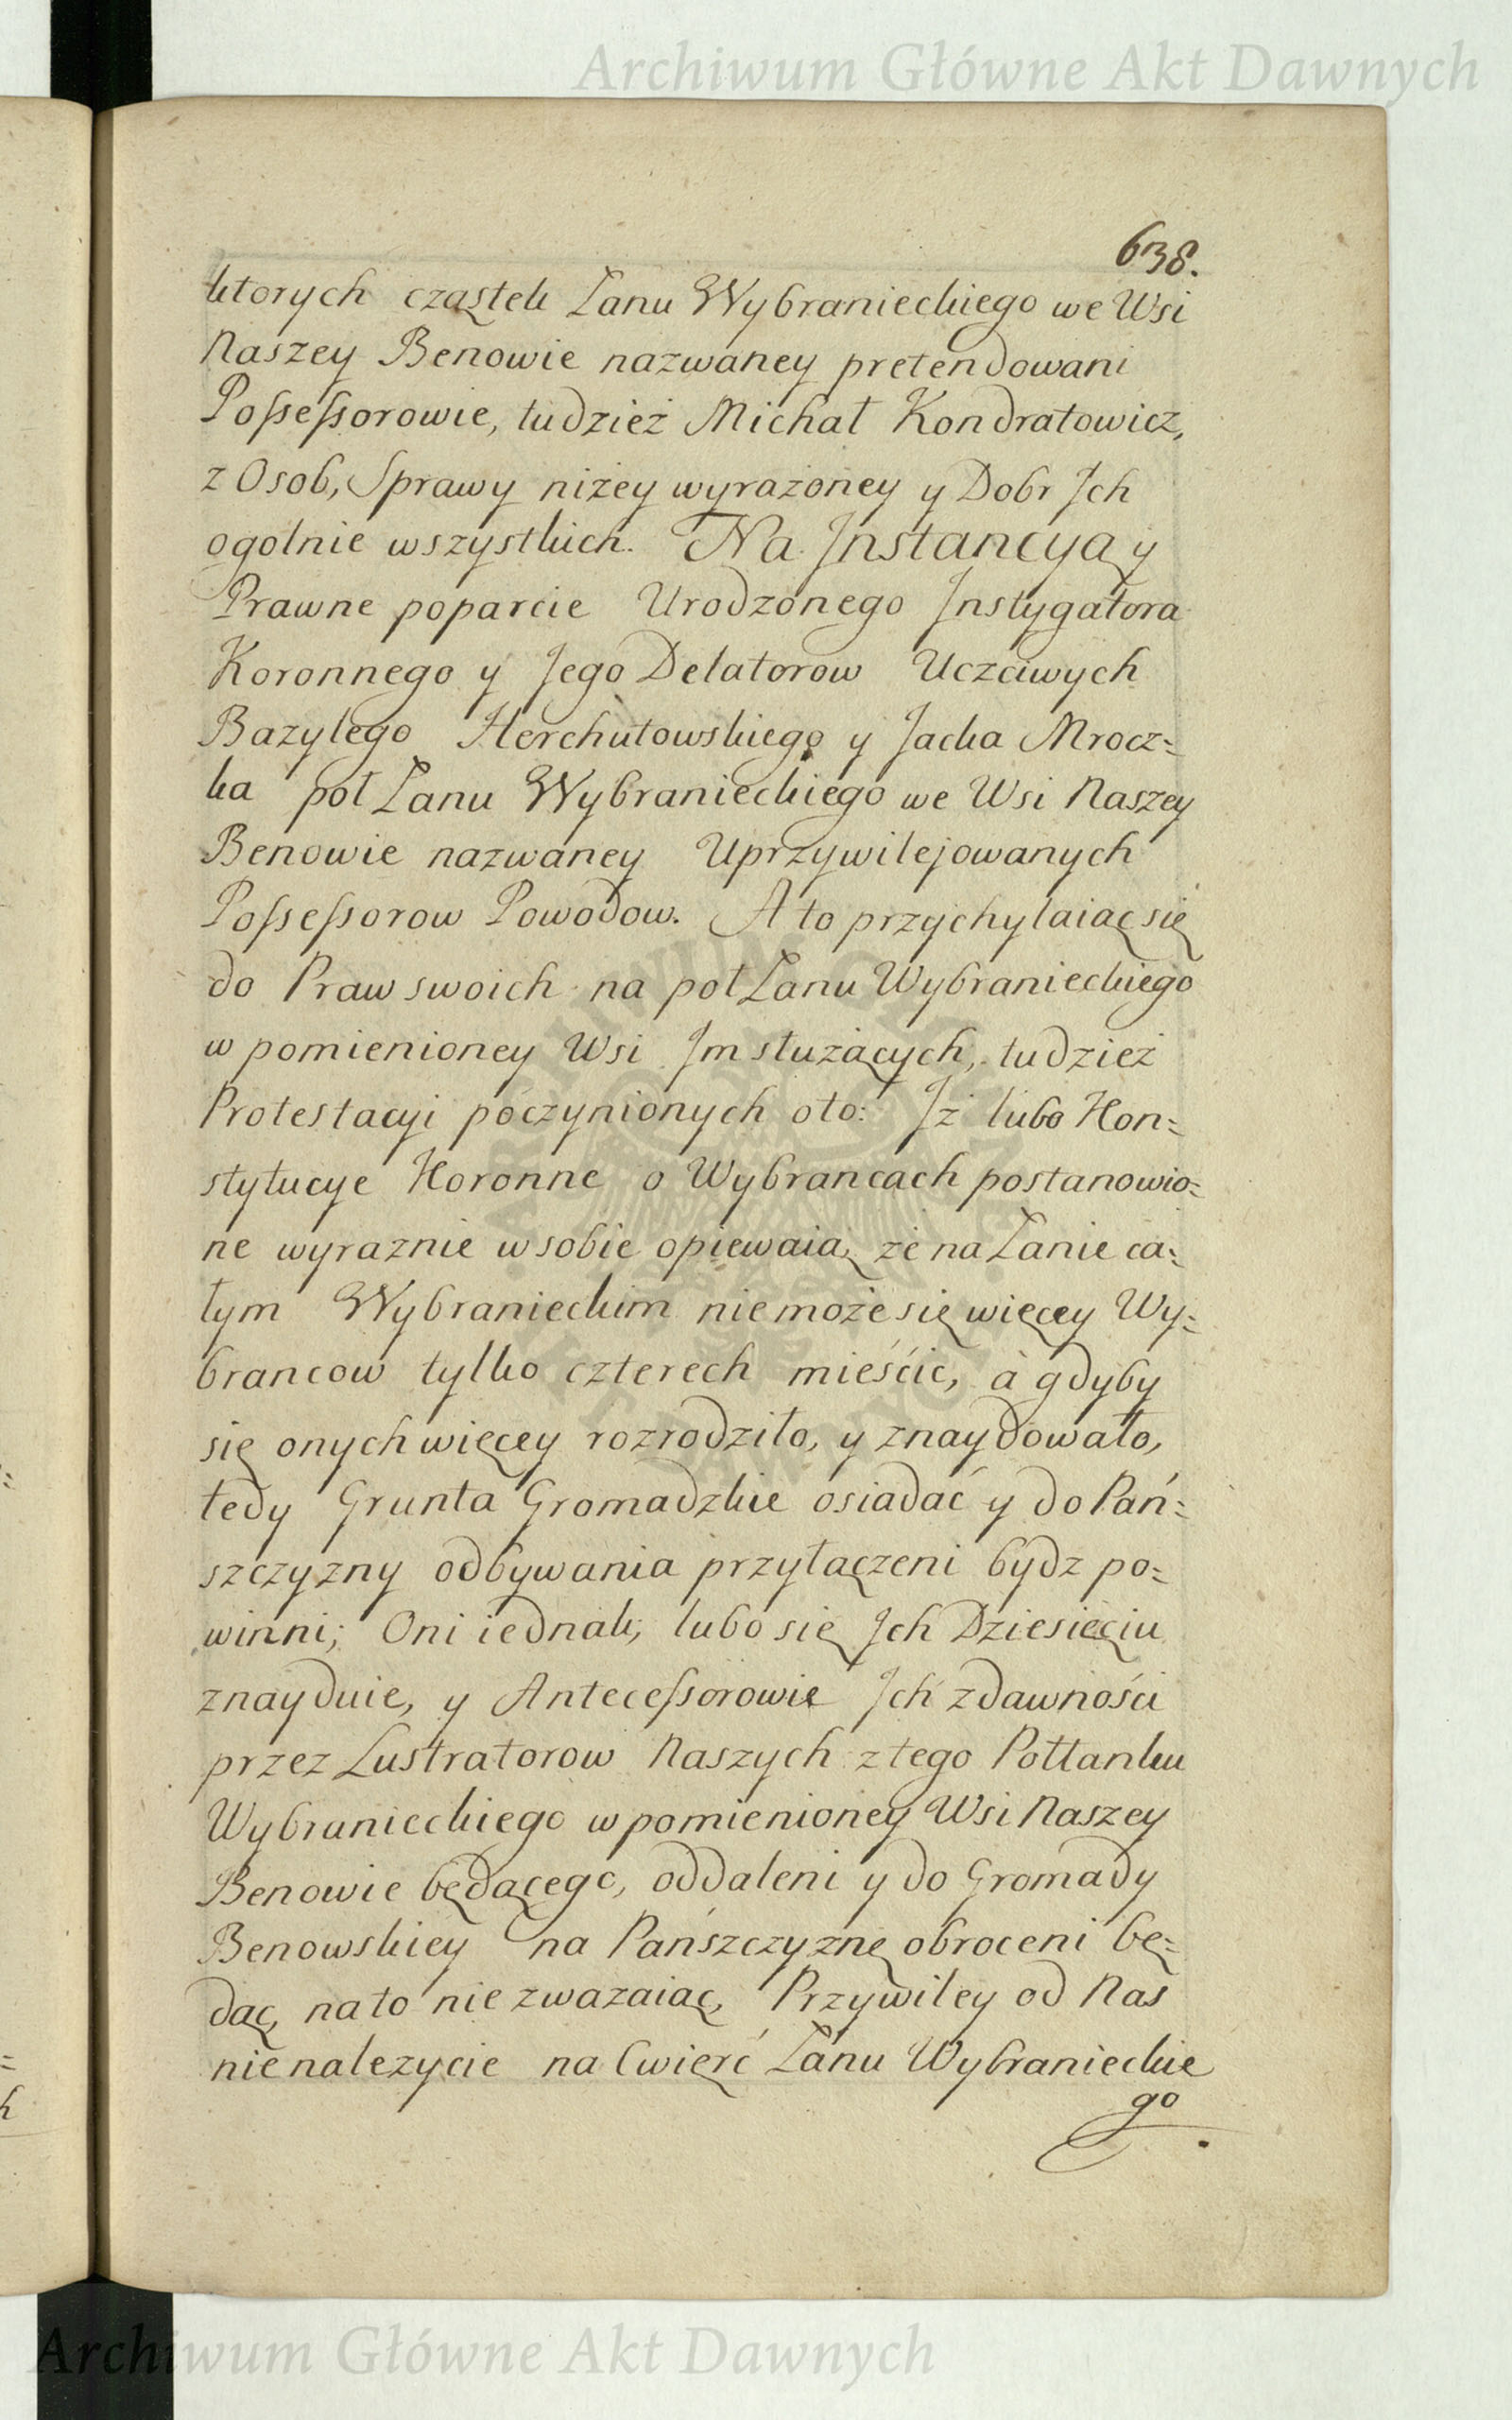 Archiwum Główne Akt Dawnych
638.
ktorych cząstek Łanu Wybranieckiego we Wsi
Naszey Benowie nazwaney pretendowani
Possessorowie, tudzież Michał Kondratowicz,
z Osob, Sprawy niżey wyrażoney y Dobr Ich
ogolnie wszystkich. Na Instancyą y
Prawne poparcie Urodzonego Instygatora
Koronnego y Jego Delatorow Uczciwych
Bazylego Herchutowskiego y Jacka Mrocz=
ka poł Łanu Wybranieckiego we Wsi Naszey
Benowie nazwaney Uprzywilejowanych
Possessorow Powodow. A to przychylaiąc się
do Praw swoich na poł Łanu Wybranieckiego
w pomienioney Wsi Im służących, tudzież
Protestacyi poczynionych oto: Iż lubo Kon=
stytucye Koronne o Wybrancach postanowio=
ne wyraznie w sobie opiewaią, że na Łanie ca=
łym Wybranieckim nie może się więcey Wy=
brancow tylko czterech mieścić, a gdyby
się onych więcey rozrodziło, y znaydowało,
tedy Grunta Gromadzkie osiadać y do Pań=
szczyzny odbywania przyłączeni bydz po=
winni; Oni iednak, lubo się Ich Dziesięciu
znayduie, y Antecessorowie Ich z dawności
przez Lustratorow Naszych z tego Połłanku
Wybranieckiego w pomienioney Wsi Naszey
Benowie będącego, oddaleni y do Gromady
Benowskiey na Pańszczyznę obroceni bę=
dąc, na to nie zwazaiąc, Przywiley od Nas
nie nalezycie na Cwierć Łanu Wybranieckie
go
Archiwum Główne Akt Dawnych